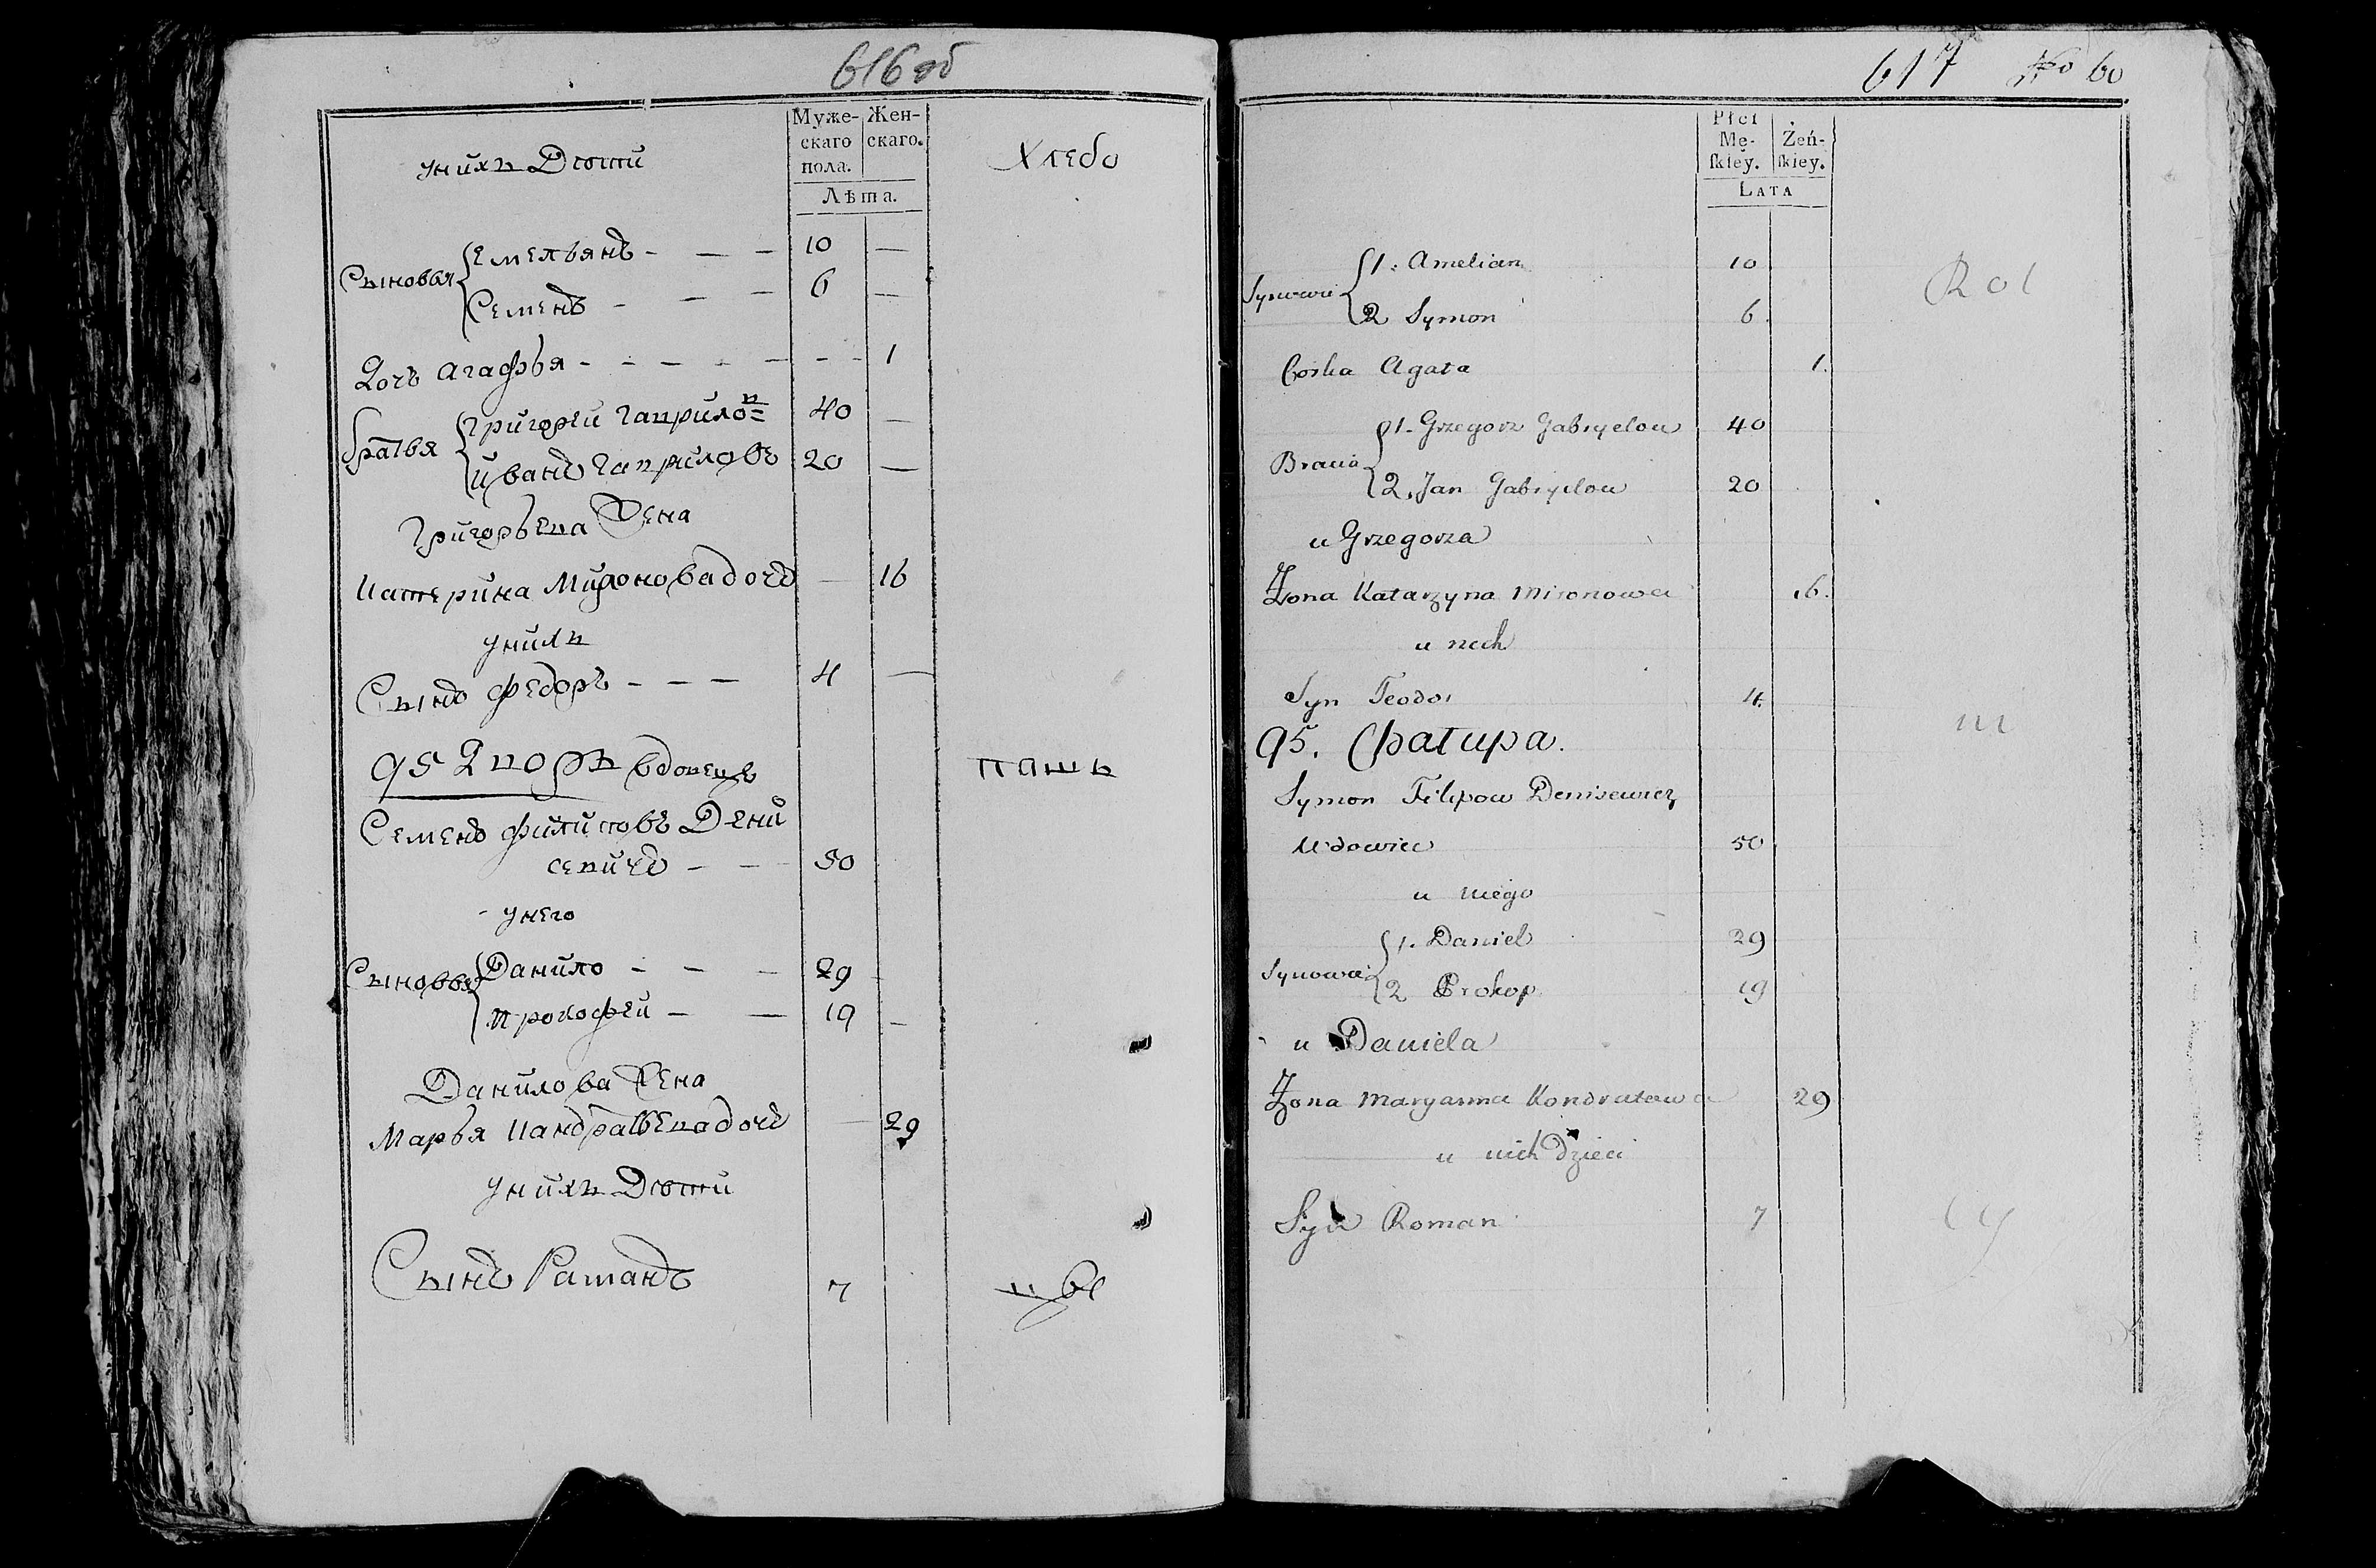 616 об
Муже-
скаго
пола.
Жен-
скаго.
Лѣта.
унихъ Дѣти
Хлебо
Сыновья
Емельянъ - — — 10 —
Семенъ - — — 6 —
Дочь Агафья - - — - — - - 1
братья
Григореи Гаврилов 40 —
Иванъ Гавриловъ 20 —
Григорьева Жена
Катерина Миронова дочь — 16
унихъ
Сынъ Федоръ - — — 4 —
95 Дворъ вдовецъ
пашъ
Семенъ Филиповъ Дени
севичъ - — 50
унего
Сыновья
Данило - — — 29 -
Прокофеи — — 19 —
Данилова Жена
Марья Кандратьева дочь — 29
унихъ Дѣти
Сынъ Раманъ 7
цы
617 No 60
Płci
Mę-
ſkiey.
Żeń-
ſkiey.
LATA
Synowie
1. Amelian 10
2 Symon 6
Rol
Corka Agata 1.
Bracia
1. Grzegorz Gabryelow 40
2. Jan Gabryelow 20
u Grzegorza
Żona Katarzyna Mironowa 16.
u nich
Syn Teodor 4.
ni
95.
Symon Filipow Denisewicz
Wdowiec 50
u niego
Synowie
1. Daniel 29
2 Prokop 19
u Daniela
Żona Maryanna Kondratowa 29
u nich Dzieci
Syn Roman 7
cy